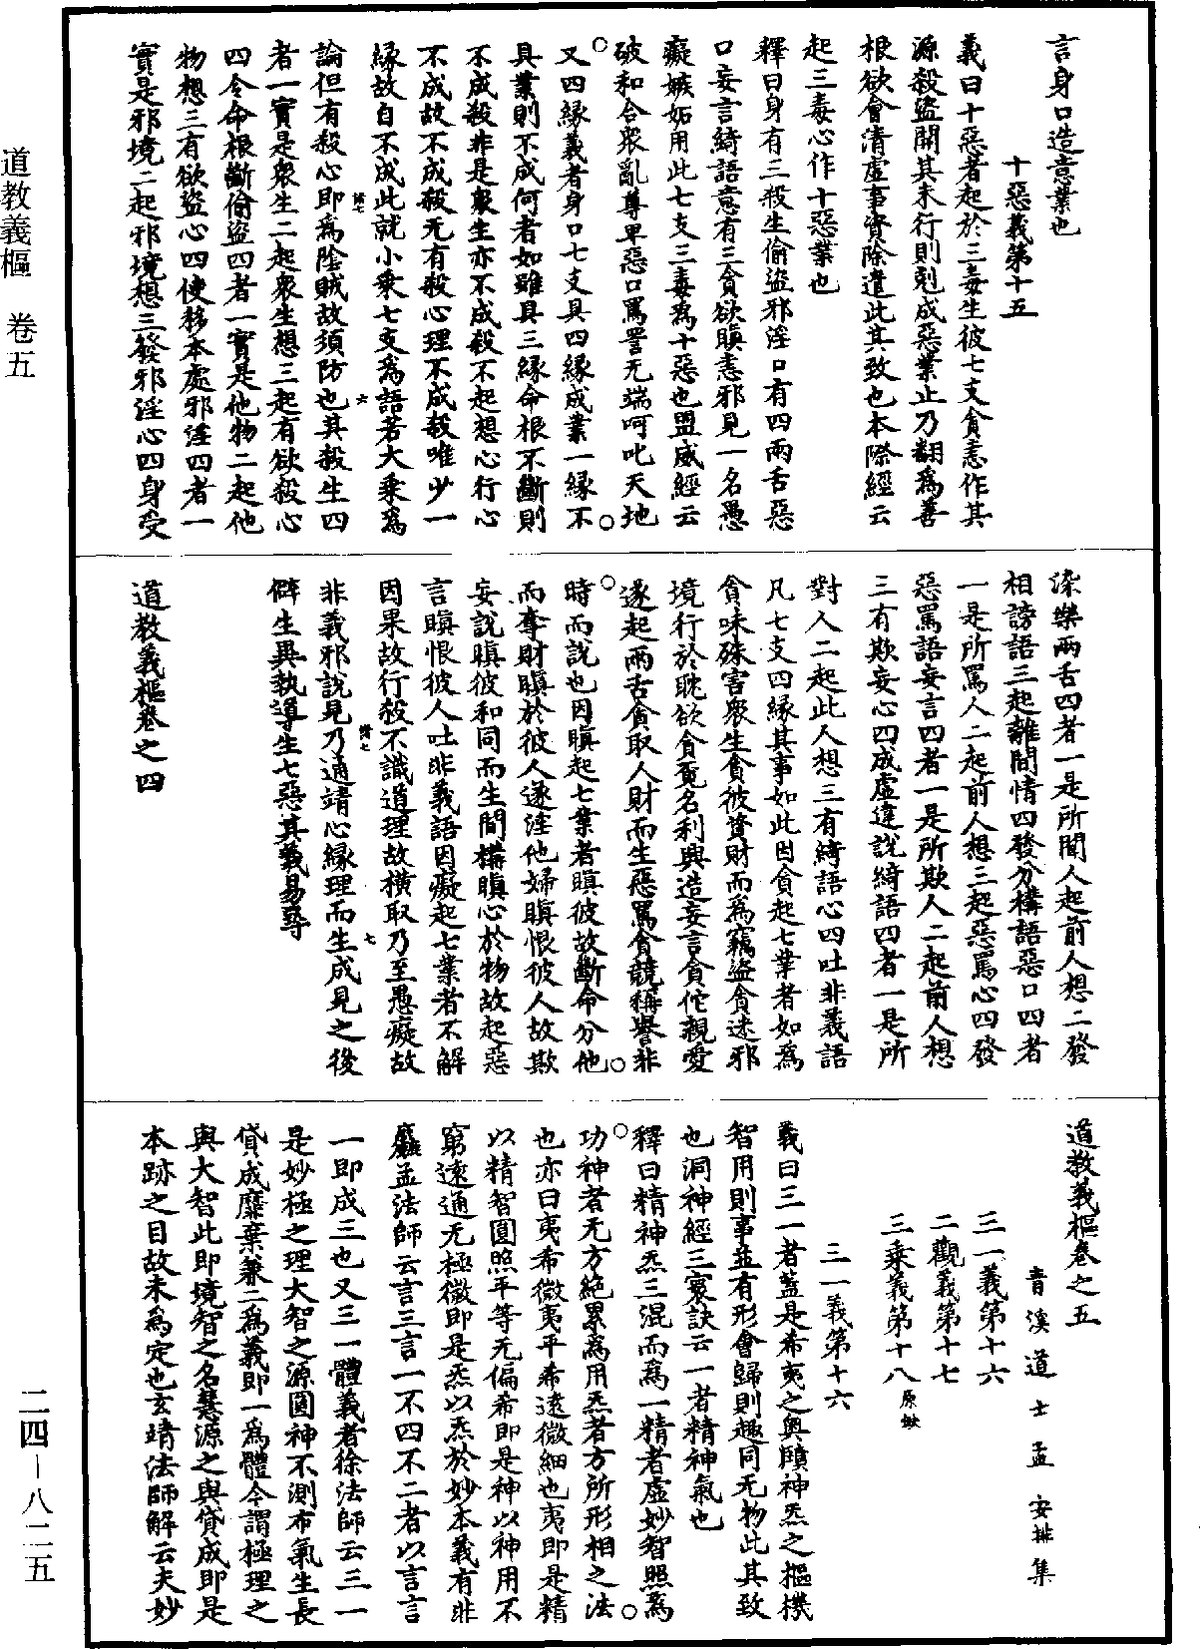 言身口造意業也
十惡義第十五
義曰十惡者起於三毒生彼七支貪恚作其
源殺盜開其末行則剋成惡業止乃翻為善
根欲會清虛事資除遣此其致也本際經云
起三毒心作十惡業也
釋曰身有三殺生偷盜邪淫口有四兩舌惡
口妄言綺語意有三貪欲瞋恚邪見一名愚
癡嫉妬用此七支三毒為十惡也盟威經云
破和合衆亂尊卑惡口罵詈无端呵叱天地
又四緣義者身口七支具四緣成業一緣不
具業則不成何者如雖具三緣命根不斷則
不成殺非是衆生亦不成殺不起想心行心
不成故不成殺无有殺心理不成殺唯少一
緣故自不成此就小乘七支為語若大乘為
論但有殺心即為陰賊故須防也其殺生四
者一實是衆生二起衆生想三起有欲殺心
四令命根斷偷盜四者一實是他物二起他
物想三有欲盜心四使移本處邪淫四者一
實是邪境二起邪境想三發邪淫心四身受
染樂兩舌四者一是所聞人起前人想二發
相謗語三起離間情四發分構語惡口四者
一是所罵人二起前人想三起惡罵心四發
惡罵語妄言四者一是所欺人二起前人想
三有欺妄心四成虛違說綺語四者一是所
對人二起此人想三有綺語心四吐非義語
凡七支四緣其事如此因貪起七業者如為
貪味殊害衆生貪彼資財而為竊盜貪迷邪
境行於耽欲貪覓名利興造妄言貪佗親愛
遂起兩舌貪取人財而生惡罵貪競稱譽非
時而說也因瞋起七業者瞋彼故斷命分他
而奪財瞋於彼人遂淫他婦瞋恨彼人故欺
妄說瞋彼和同而生間構瞋心於物故起惡
言瞋恨彼人吐非義語因癡起七業者不解
因果故行殺不識道理故橫取乃至愚癡故
非義邪說見乃通靖心緣理而生成見之後
僻生異執導生七惡其義易尋
道教義樞卷之四
道教義樞卷之五
青溪道士孟安排集
三一義第十六
二觀義第十七
三乘義第十八原缺
三一義第十六
義曰三一者蓋是希夷之奧賾神炁之樞機
智用則事並有形會歸則趣同无物此其致
也洞神經三寰訣云一者精神氣也
釋曰精神炁三混而為一精者虛妙智照為
功神者无方絕累為用炁者方所形相之法
也亦曰夷希微夷平希遠微細也夷即是精
以精智圓照平等无偏希即是神以神用不
窮遠通无極微即是炁以炁於妙本義有非
麤孟法師云言三言一不四不二者以言言
一即成三也又三一體義者徐法師云三一
是妙極之理大智之源圓神不測布氣生長
貸成靡棄兼二為義即一為體今謂極理之
與大智此即境智之名慧源之與貸成即是
本跡之目故未為定也玄靖法師解云夫妙
道教義樞　卷五
二四－八二五